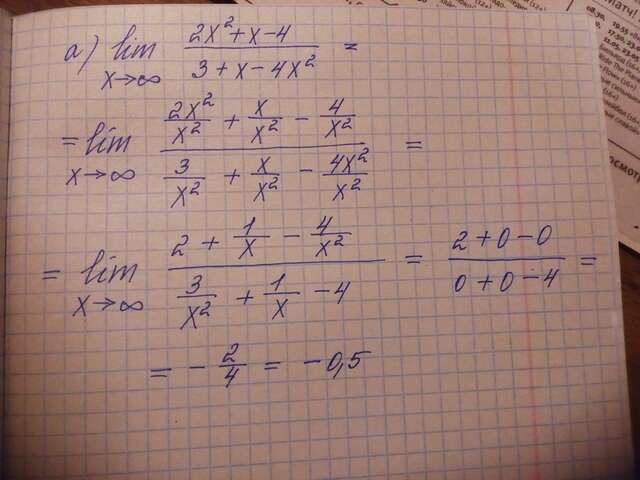 а) lim x→∞ (2x²+x-4)/(3+x-4x²) =
= lim x→∞ (2x²/x² + x/x² - 4/x²)/(3/x² + x/x² - 4x²/x²) =
= lim x→∞ (2 + 1/x - 4/x²)/(3/x² + 1/x - 4) = (2+0-0)/(0+0-4) =
= - 2/4 = -0,5